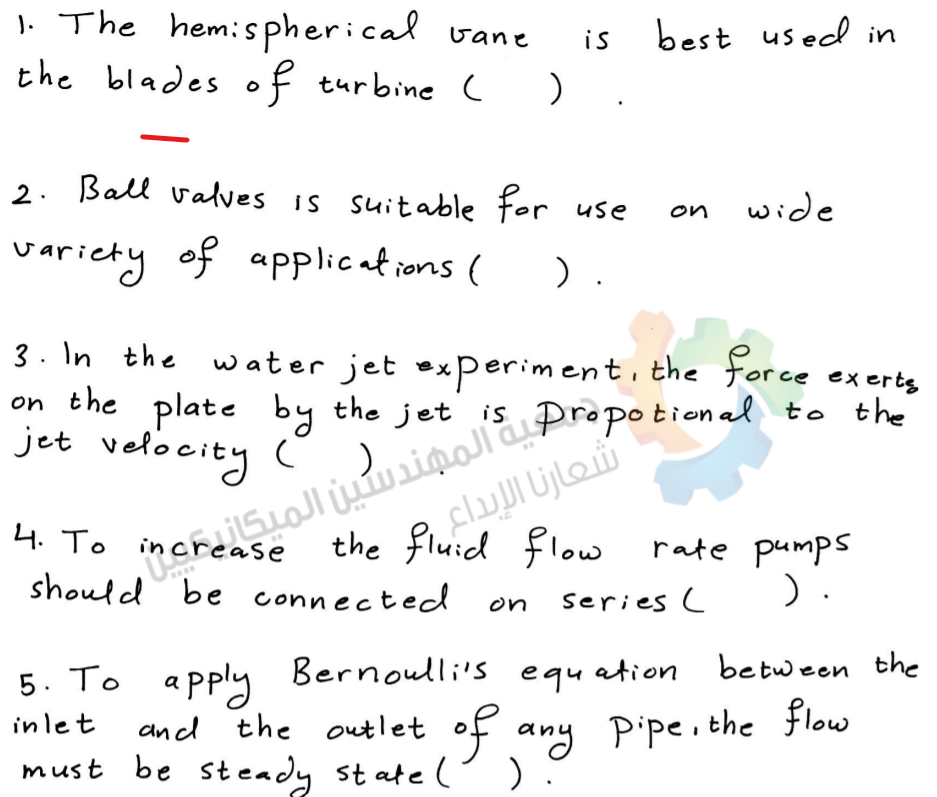 1. The hemispherical vane is best used in
the blades of turbine ( ) .
2. Ball valves is suitable for use on wide
variety of applications ( ) .
3. In the water jet experiment, the force exerts
on the plate by the jet is propotional to the
jet velocity ( ) .
جمعية المهندسين الميكانيكيين
شعارنا الإبداع
4. To increase the fluid flow rate pumps
should be connected on series ( ) .
5. To apply Bernoulli's equation between the
inlet and the outlet of any pipe, the flow
must be steady state ( ) .